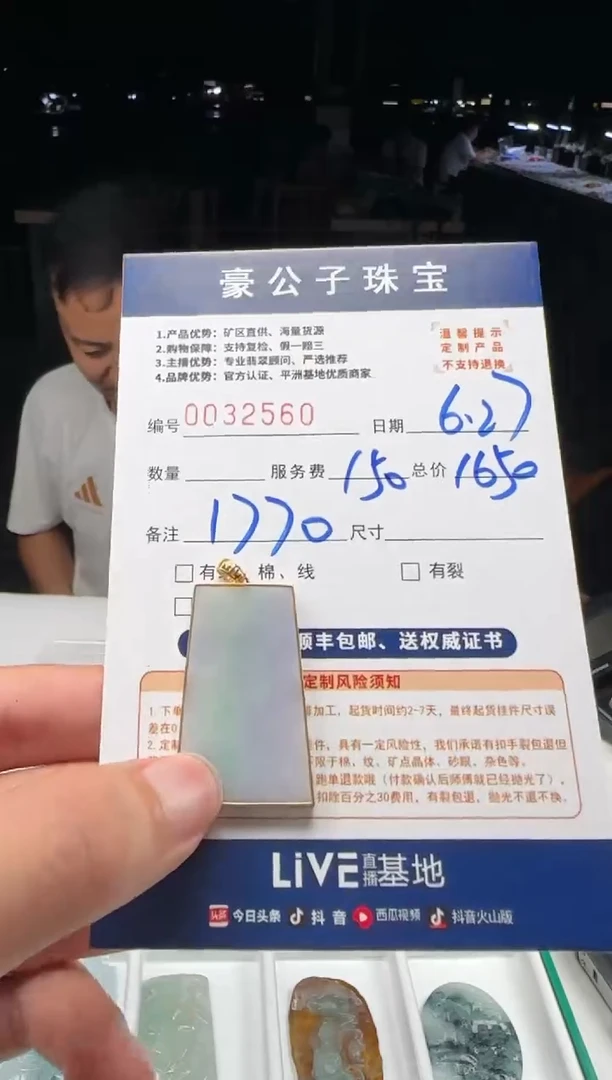 豪公子珠宝
1.产品优势：矿区直供、海量货源
2.购物保障：支持复检、假一赔三
3.主播优势：专业翡翠顾问、严选推荐
4.品牌优势：官方认证、平洲基地优质商家
温馨提示
定制产品
不支持退换
编号 0032560 日期 6.27
数量 服务费 150 总价 1650
备注 1770 尺寸
有 棉、线 有裂
顺丰包邮、送权威证书
定制风险须知
1.下单 加工，起货时间约2-7天，最终起货挂件尺寸误
差在0
2.定制 件，具有一定风险性，我们承诺有扣手裂包退但
不限于棉、纹、矿点晶体、砂眼、杂色等。
跑单退款哦（付款确认后师傅就已经抛光了），
扣除百分之30费用，有裂包退，抛光不退不换。
LiVE直播基地
头条 今日头条 抖音 西瓜视频 抖音火山版